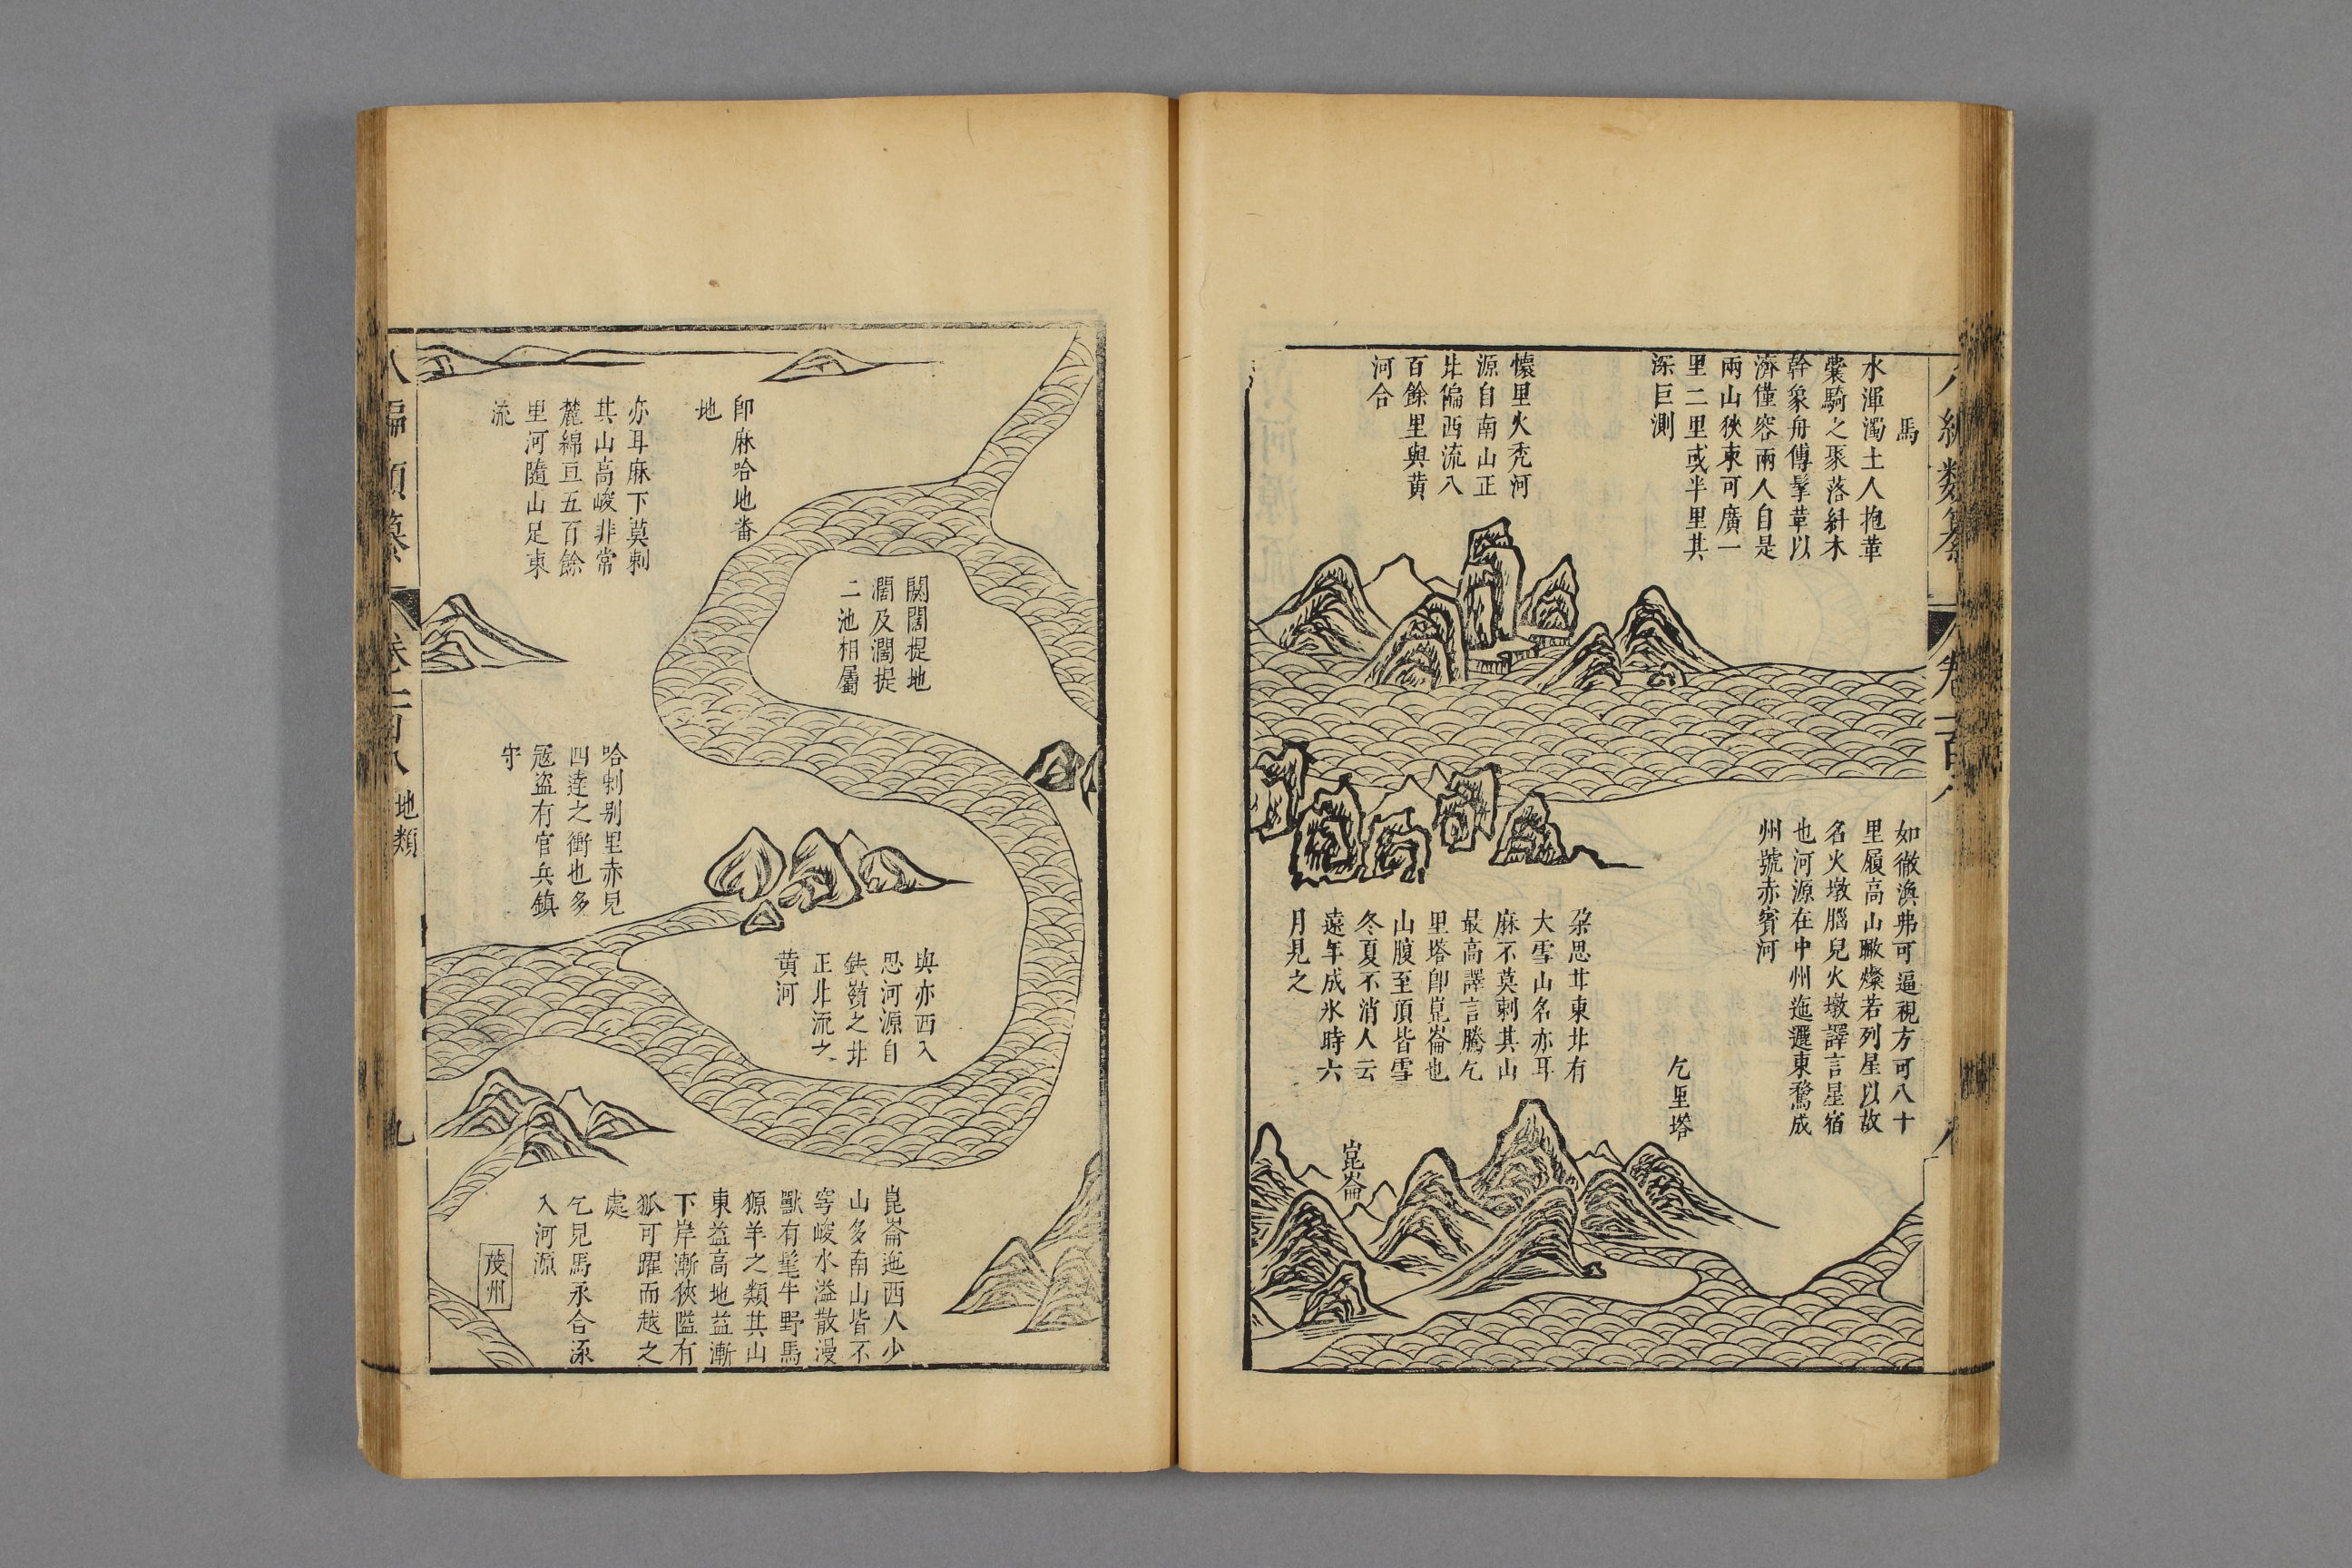 馬
水渾濁土人抱革
囊騎之聚落糾木
幹象舟傅髦革以
濟僅容兩人自是
兩山狹東可廣一
里二里或半里其
深叵測
懷里火禿河
源自南山正
北偏西流八
百餘里與黄
河合
如徹渙弗可逼視方可八十
里履高山瞰燦若列星以故
名火墩腦兒火墩譯言星宿
也河源在中州迤邐東鶩成
州號赤賓河
乞里塔
朶思甘東北有
大雪山名亦耳
麻不莫剌其山
最高譯言騰乞
里塔卽崑崙也
山腹至頂皆雪
冬夏不消人云
遠年成氷時六
月見之
崑崙
卽麻哈地畨
地
亦耳麻下莫剌
其山高峻非常
麓綿亘五百餘
里河隨山足東
流
闊闊提地
濶及濶提
二池相屬
哈剌别里赤見
四達之衝也多
冦盗有官兵鎮
守
與亦西入
思河源自
鉄嶺之北
正北流之
黄河
崑崙迤西人少
山多南山皆不
穹峻水溢散漫
獸有髦牛野馬
獂羊之類其山
東益高地益漸
下岸漸狹隘有
狐可躍而越之
處
乞見馬永合涿
入河源
茂州
八編類纂
地類
九